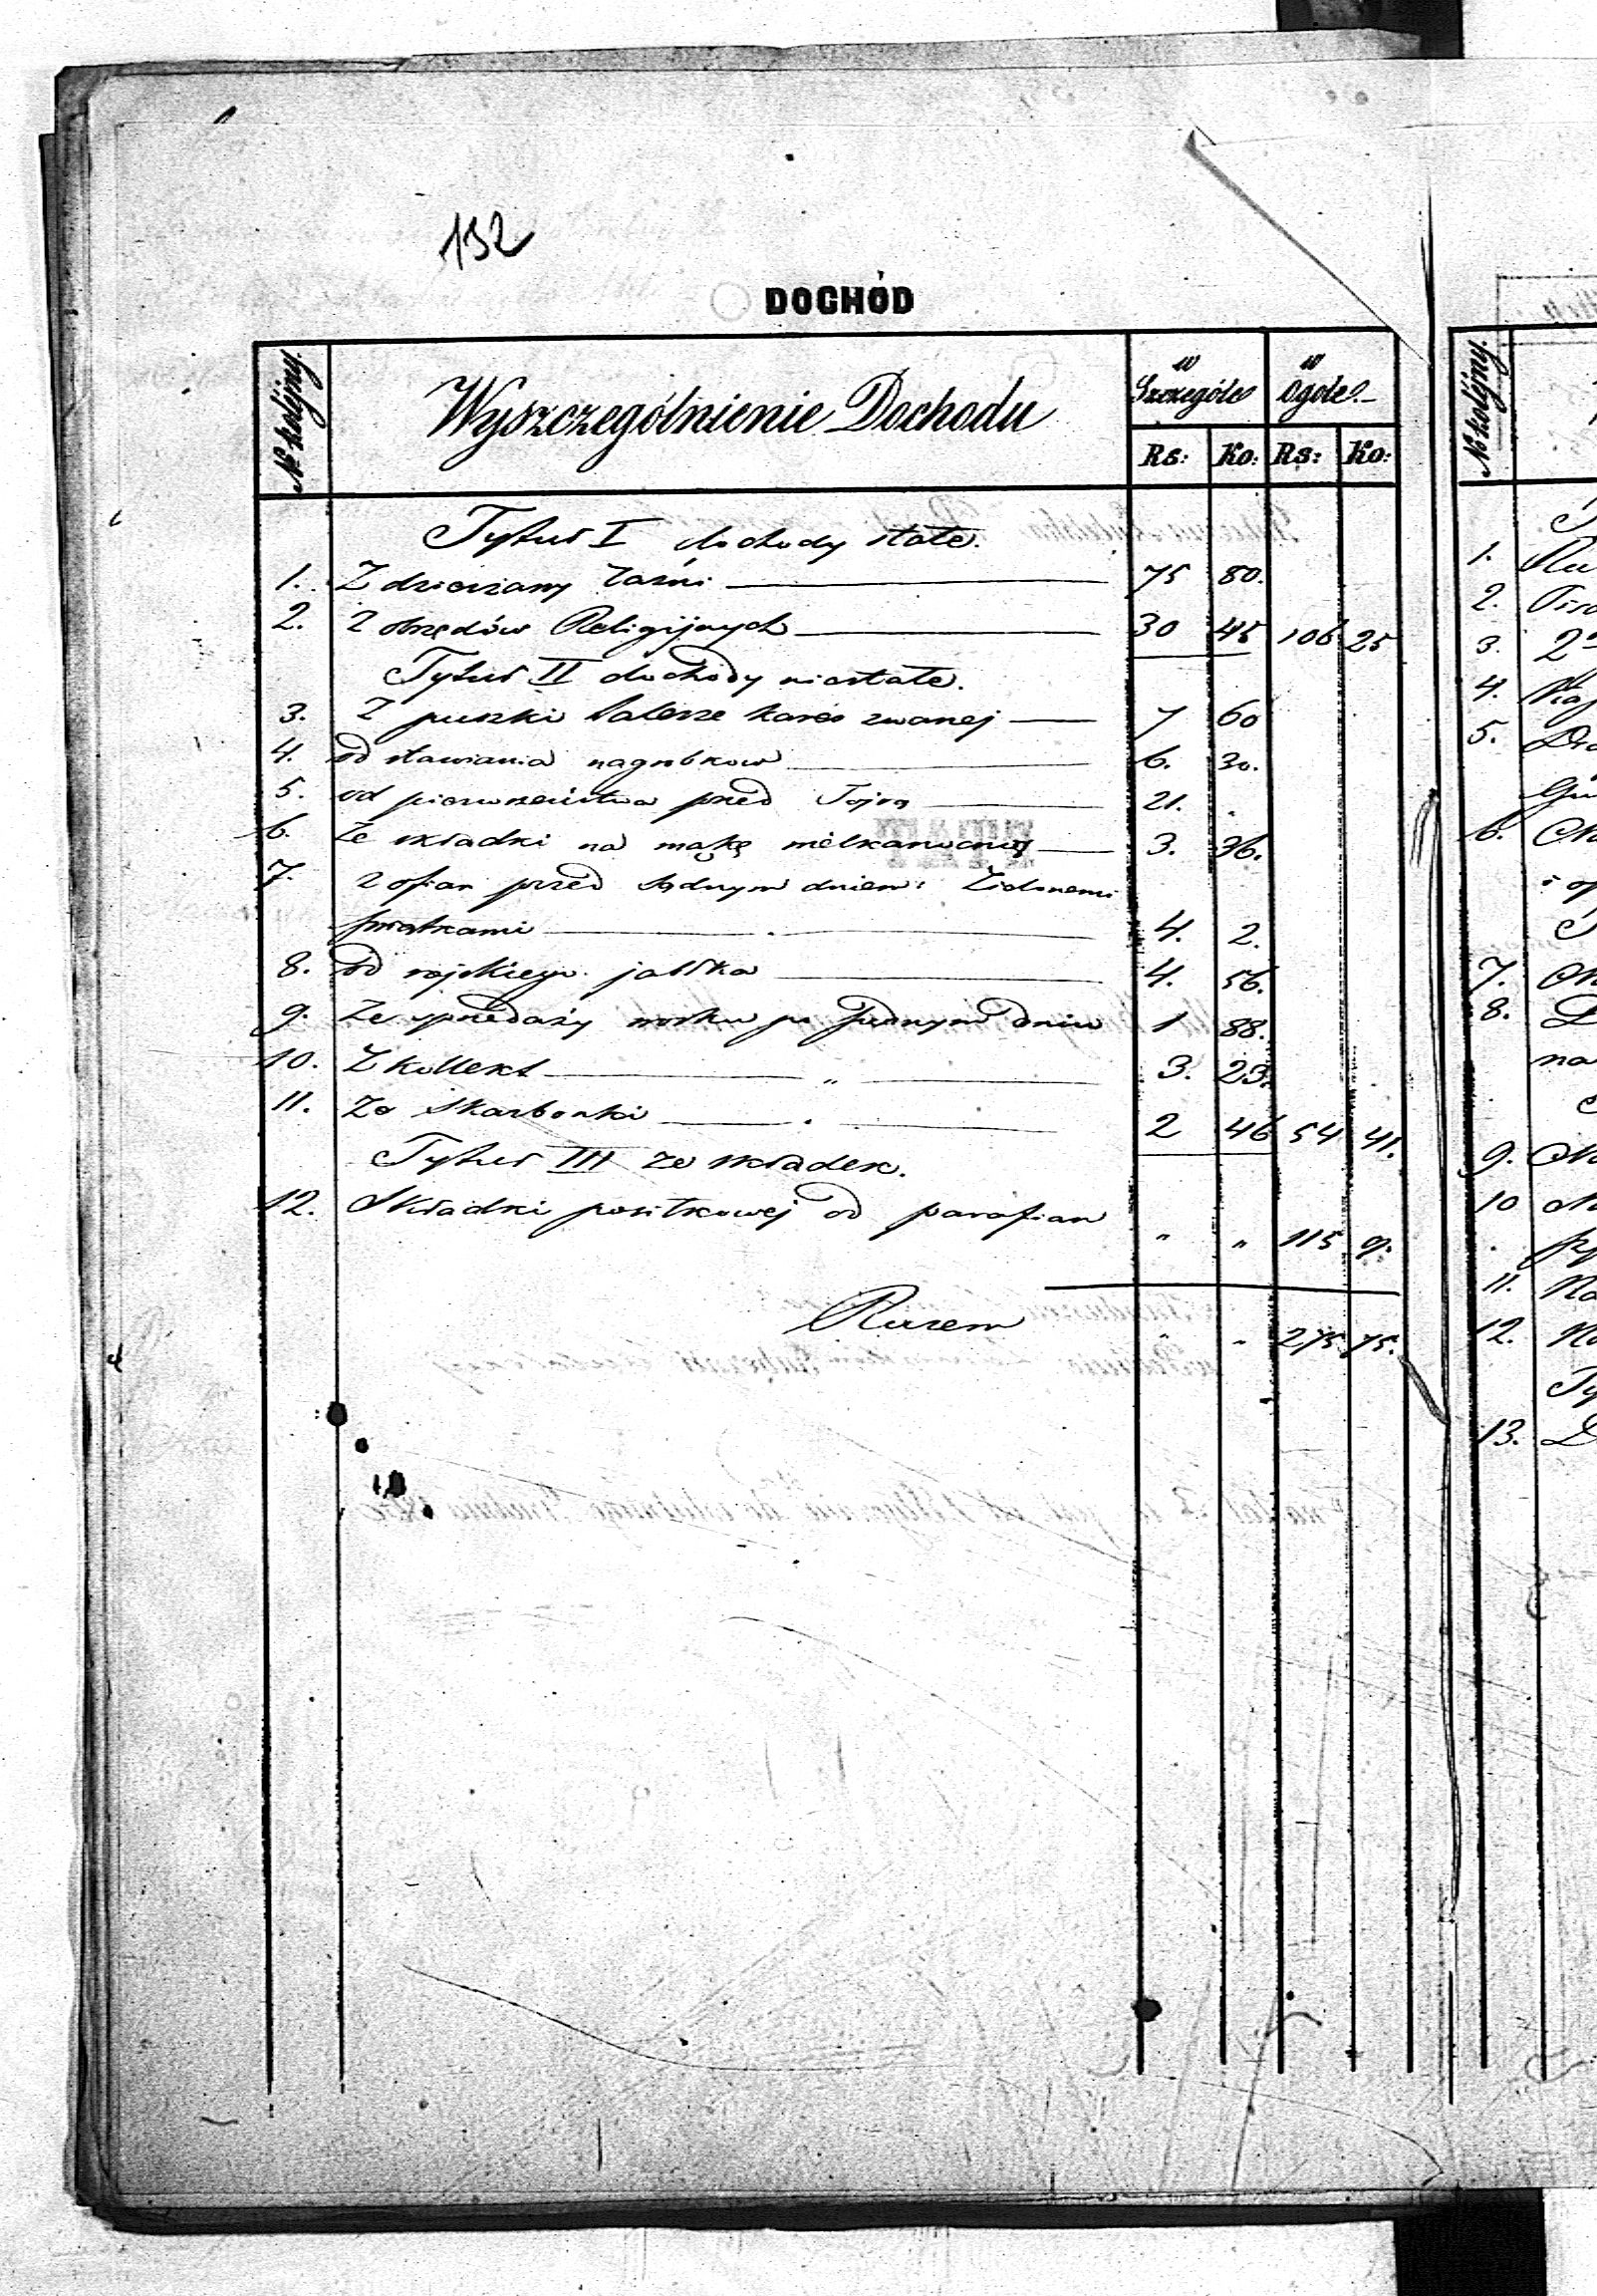 132
DOCHÓD
№ kolejny. Wyszczególnienie Dochodu w Szczególe w Ogóle.
Rs: Ko: Rs: Ko:
Tytuł I dochody stałe.
1. Z dzierżawy Łaźni 75 80.
2. Z obrzędów Religijnych 30 45 106 25
Tytuł II dochody niestałe.
3. Z puszki zwanej 7 60
4. od stawiania nagrobków 6. 30.
5. od pierwszeństwa przed Tojrą 21. .
6. Ze składki na mąkę 3. 36.
7. z ofiar przed Sądnym dniem i Zielonemi
świątkami 4. 2.
8. od rajskiego jabłka 4. 56.
9. Ze sprzedaży wosku po Sądnym dniu 1 88.
10. Z kollekt " 3. 23.
11. Ze Skarbonki 2 46 54 41.
Tytuł III ze składek.
12. Składki posiłkowej od parafian
" " 115 9.
Razem " " 275 75.
№ kolejny.
1.
2.
3.
4.
5.
6.
7.
8.
na
9.
10
11. Na
12. Na
13.